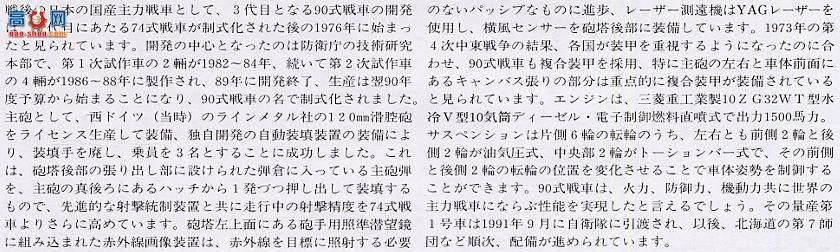 戦後の日本の国産主力戦車として、3代目となる90式戦車の開発
目にあたる74式戦車が制式化された後の1976年に始まっ
たと見られています。開発の中心となったのは防衛庁の技術研究
本部で、第1次試作車の2輛が1982〜84年、続いて第2次試作車
の4輛が1986〜88年に製作され、89年に開発終了、生産は翌90年
度予算から始まることになり、90式戦車の名で制式化されました。
主砲として、西ドイツ(当時)のラインメタル社の120mm滑腔砲
をライセンス生産して装備、独自開発の自動装填装置の装備によ
り、装填手を廃し、乗員を3名とすることに成功しました。これ
は、砲塔後部の張り出し部に設けられた弾倉に入っている主砲弾
を、主砲の真後ろにあるハッチから1発づつ押し出して装填する
もので、先進的な射撃統制装置と共に走行中の射撃精度を74式戦
車よりさらに高めています。砲塔左上面にある砲手用照準潜望鏡
に組み込まれた赤外線画像装置は、赤外線を目標に照射する必要
のないパッシブなものに進歩、レーザー測遠機はYAGレーザーを
使用し、横風センサーを砲塔後部に装備しています。1973年の第
4次中東戦争の結果、各国が装甲を重視するようになったのに合
わせ、90式戦車も複合装甲を採用、特に主砲の左右と車体前面に
あるキャンバス張りの部分は重点的に複合装甲が装備されている
と見られています。エンジンは、三菱重工業製10ZG32WT型水
冷V型10気筒ディーゼル・電子制御燃料直噴式で出力1500馬力。
サスペンションは片側6輪の転輪のうち、左右とも前側2輪と後
側2輪が油気圧式、中央部2輪がトーションバー式で、その前側
と後側2輪の転輪の位置を変化させることで車体姿勢を制御する
ことができます。90式戦車は、火力、防御力、機動力共に世界の
主力戦車にならぶ性能を実現したと言えるでしょう。その量産第
1号車は1991年9月に自衛隊に引渡され、以後、北海道の第7師
団など順次、配備が進められています。